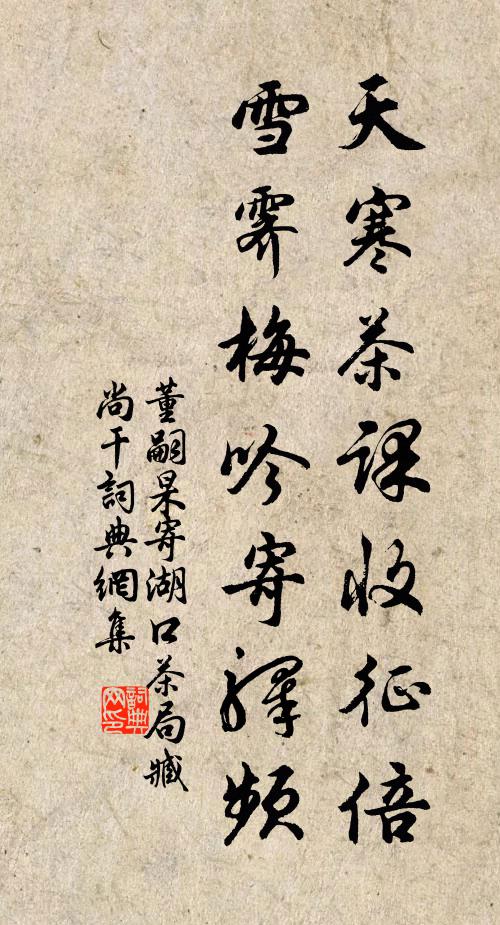 天寒茶課收征倍
雪霽梅吟寄驛頻
董嗣杲寄湖口茶局臧
尚干詞典網集
詞典
网印